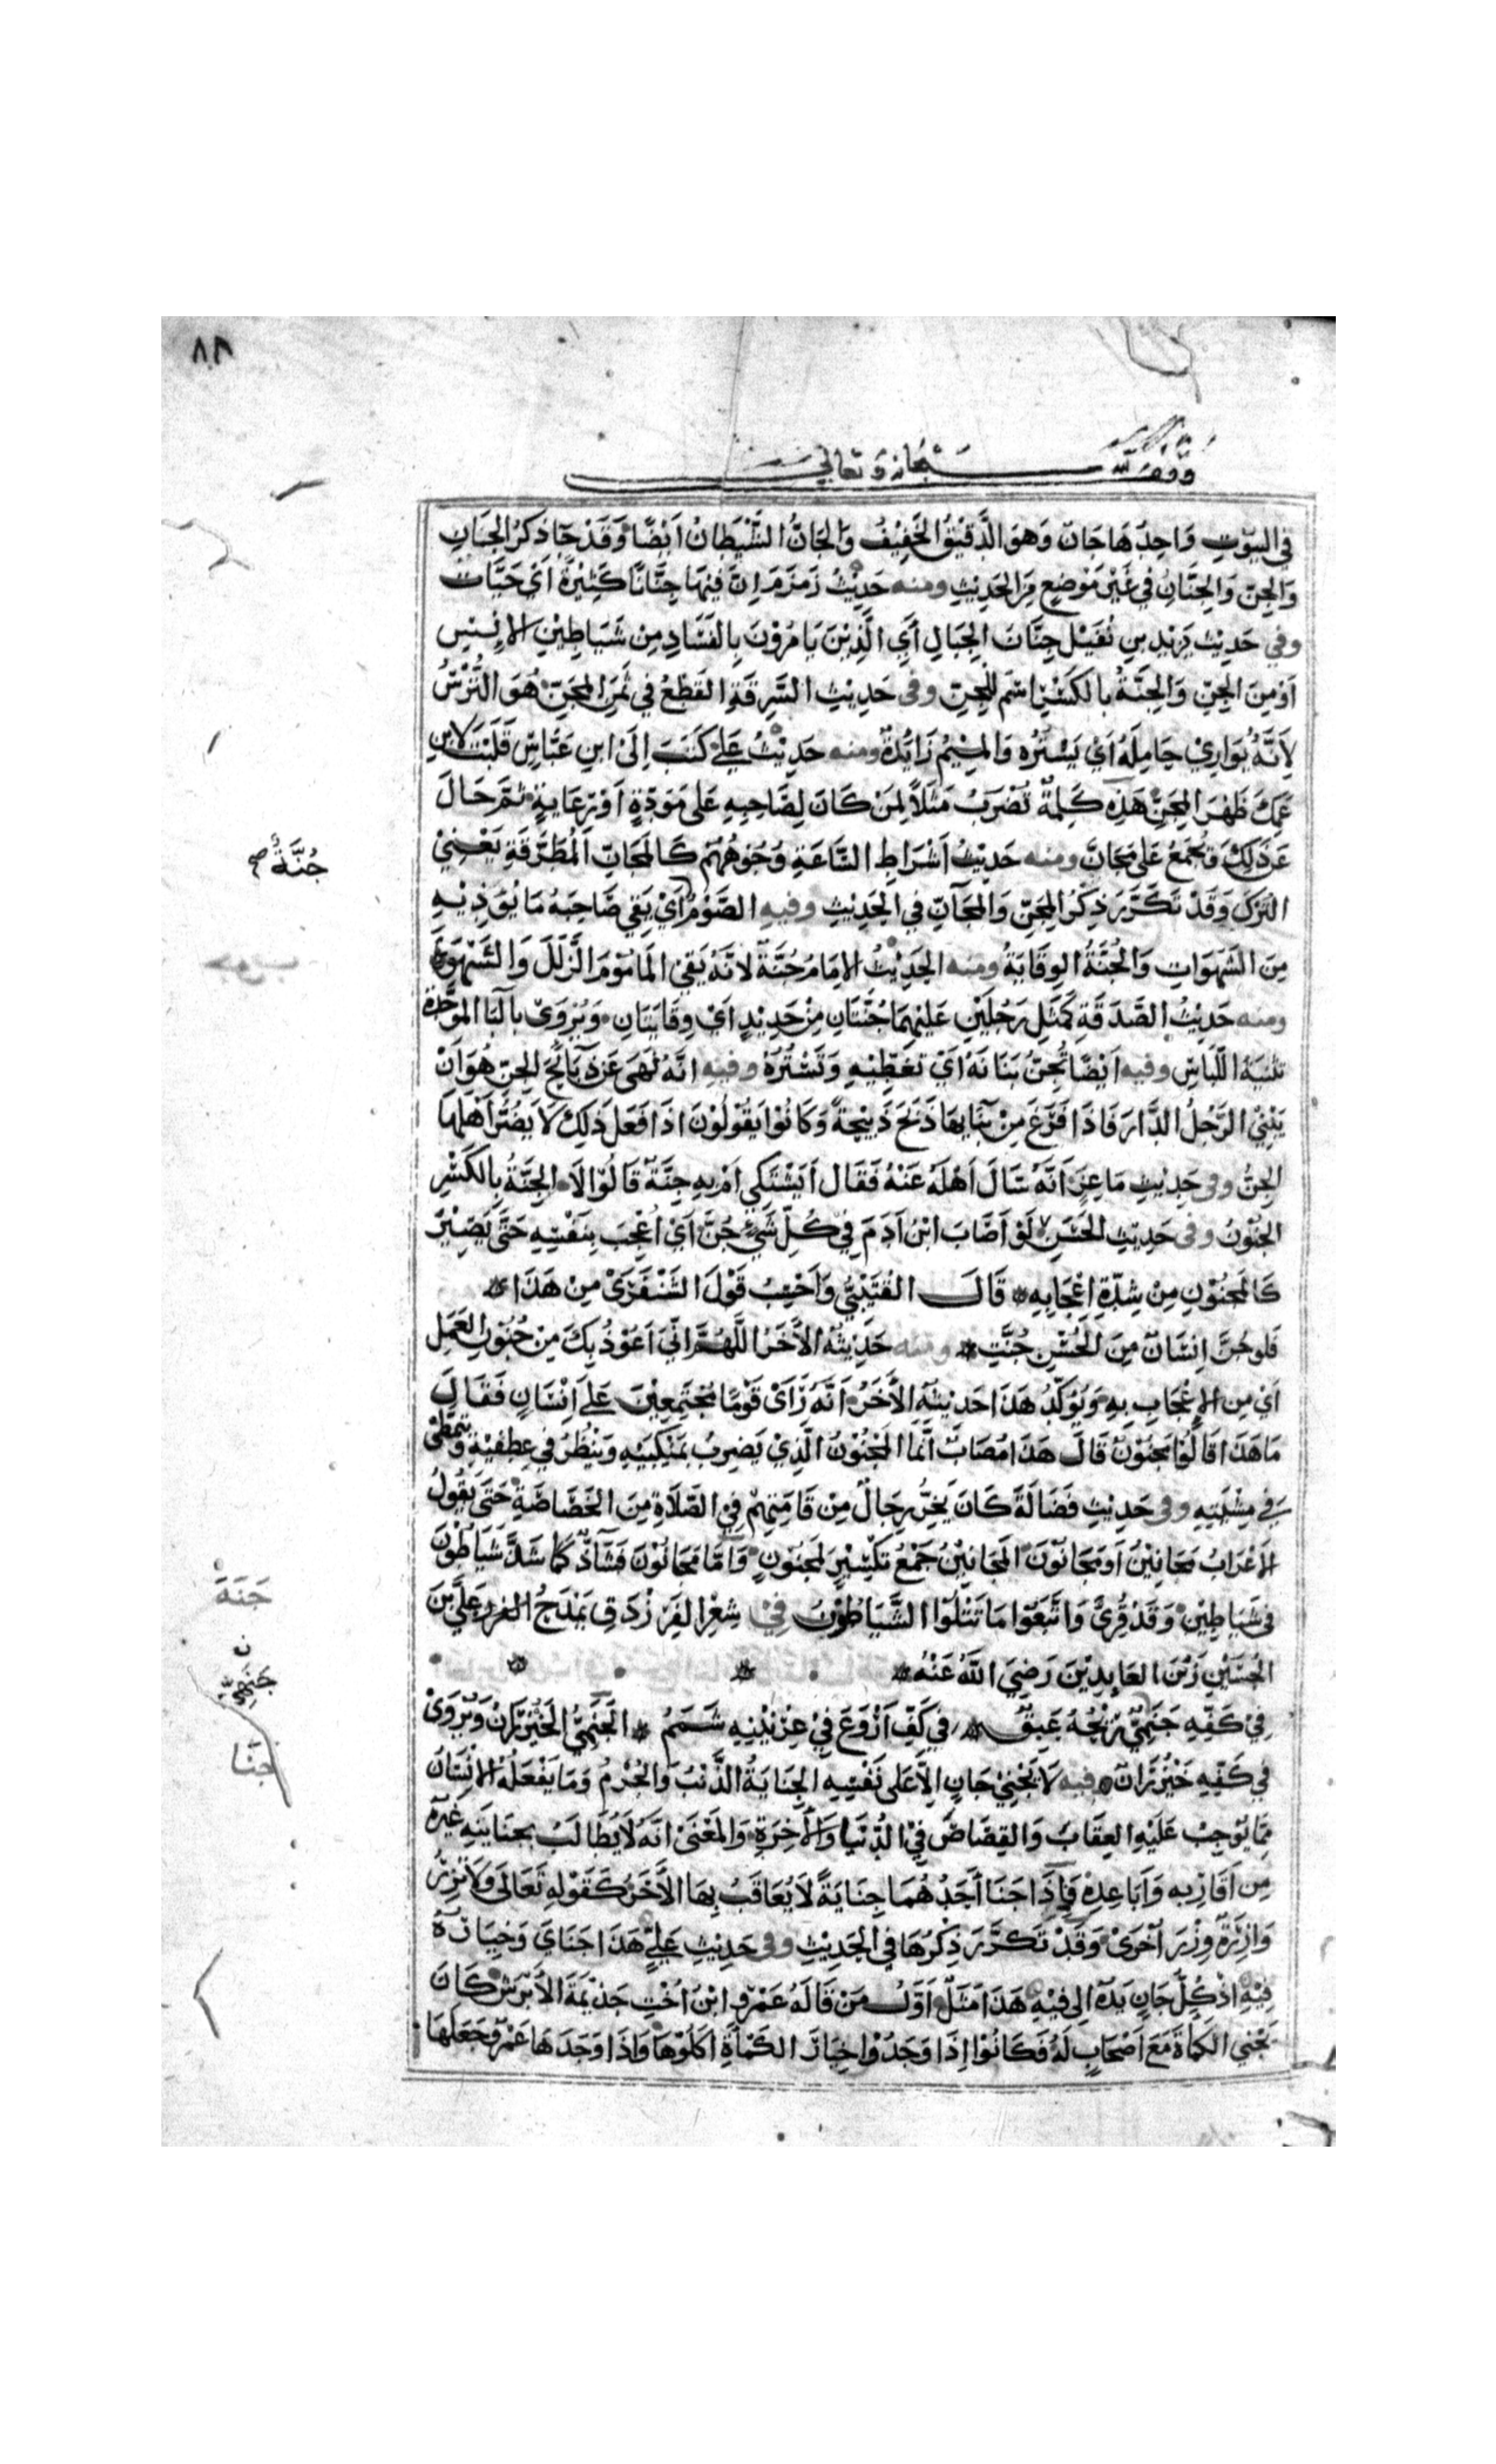 ٨٨
وقف لله سبحانه وتعالى
في البيوت وَاحِدُهَا جَانّ وَهوَ الدَّقِيْقُ الخَفِيْفُ وَالجَانُّ الشَّيْطَانُ اَيْضًا وَقَدْ جَآ ذكرُ الجَانِ
وَالجِنّ وَالجِنَّانِ في غَيْرِ مَوْضِعٍ مِنَ الحَدِيْثِ ومنه حَدِيْثُ زَمزَمَ اِنَّ فيْهَا جِنَّانًا كَثِيْرَةً اَيْ حَيَّات
وفي حَدِيْث زيْدِ بنِ نُفَيْل جِنَّان الجِبَالِ أَيِ الَّذِيْنَ يَامُرُوْنَ بِالفَسَادِ مِنْ شَيَاطِيْنِ الانِسْ
اَوْ مِنَ الجِنّ وَالجِنَّةُ بالكَسْرِ اسْم لِلْجِنّ وفى حَدِيْثِ السَّرِقَةِ القَطْعُ في ثَمَنِ المِجَنّ هُوَ التُّرْسُ
لِاَنَّهُ يُوَارِيْ حَامِلَهُ اَيْ يَسْتُرُه وَالمِيْمُ زَائِدَةٌ ومنه حَدِيْثُ عَلِيّ كَتَبَ اِلَى ابنِ عَبَّاسٍ قَلَبْتَ لابنِ
عَمِّكَ ظَهْرَ المِجَنّ هَذِه كَلِمَةٌ تُضْرَبُ مَثَلًا لِمَنْ كَانَ لِصَاحِبِهِ عَلى مَوَدّةٍ اَوْ رِعَايَةٍ ثمَّ حَالَ
عَنْ ذَلِكَ وَتُجْمَعُ عَلى مَجَانّ ومنه حَدِيْثُ اَشْرَاطِ السَّاعَةِ وُجُوْهُهُمْ كَالمَجَانِّ المُطَرَّقَةِ يَعْنِيْ
التركَ وَقَدْ تَكَرَّرَ ذِكْرُ المِجَنِّ وَالمَجَآنِّ في الحَدِيْثِ وفيهِ الصَّوْمُ جُنَّةٌ اَيْ يَقِي صَاحِبَهُ مَا يُؤْذِيْهِ
مِنَ الشَهَوَاتِ وَالجُنَّةُ الوِقَايَةُ ومنه الحَدِيْثُ الامَامُ جُنَّةٌ لانَّهُ يَقِي المَامُوْمَ الزَّلَلَ وَالسَّهْوَ
ومنه حَدِيْثُ الصَّدَقَةِ كَمَثَلِ رَجُلَيْنِ عَلَيْهِمَا جُنَّتَانِ مِنْ حَدِيْدٍ اَيْ وِقَايَتَانِ وَيُرْوَى بِالبَا الموَحَّدَة
تثنيَة اللّبَاسِ وفيه اَيْضًا تُجِنُّ بَنَانَهُ اَيْ تُغَطِّيْهِ وَتَسْتُرُهُ وفيْهِ انَّهُ نَهَى عَنْ ذَبَائِحِ الجِنّ هُوَ اَنْ
يَبْنِيَ الرَّجُلُ الدَّارَ فَاذَا فَرَغَ مِنْ بِنَآئِهَا ذَبَحَ ذَبِيْحَةً وَكَانُوْا يَقُوْلُوْنَ اذَا فَعَلَ ذَلِكَ لَا يَضُرُّ اَهْلَهَا
الجِنُّ وفى حَدِيْثِ مَاعِزٍ اَنَّهُ سَالَ اَهْلَهُ عَنْهُ فَقَالَ اَيَشْتَكِي اَمْ بِهِ جِنَّةٌ قَالُوْا لَا الجِنَّةُ بِالكَسْرِ
الجُنُوْنُ وفى حَدِيْثِ الحَسَنِ لَوْ اَصَابَ ابْنُ اٰدَمَ فِيْ كُلّ شَيْءٍ جُنَّ اَيْ اُعْجِبَ بِنَفْسِهِ حَتَّى يَصِيْرَ
كَالمَجْنُوْنِ مِنْ شِدّةِ اِعْجَابِهِ قَالَ القُتَيْبِيُّ وَاَحْسِبُ قَوْلَ الشَّنْفَرَىْ مِنْ هَذَا
فَلو جُنَّ اِنْسَانٌ مِنَ الحُسْنِ جُنَّتِ ومنه حَدِيْثُهُ الاٰخَرُ اللَّهُمَّ اِنِّيْ اَعُوْذُ بِكَ مِنْ جُنُوْنِ العَمَلِ
اَيْ مِن الإعْجَابِ بِهِ وَيُؤكّدُ هَذَا حَديثُهُ الاٰخَرُ اَنَّهُ رَاَىْ قَوْمًا مُجْتَمِعِيْنَ عَلَى اِنْسَانٍ فَقَالَ
مَا هَذَا قَالُوْا مَجْنُوْنٌ قَالَ هَذَا مُصَابٌ انَّمَا المَجْنُوْنُ الَّذِيْ يَضْرِبُ بِمَنْكِبَيْهِ وَيَنْظُرُ في عِطْفَيْهِ وَيَتَمَطَّى
في مِشْيَتِهِ وفى حَدِيْثِ فَضَالَةَ كَانَ يَخِرُّ رِجَالٌ مِنْ قَامَتِهِمْ فِي الصَّلَاةِ مِنَ الخَصَاصَةِ حَتَّى يَقُولُ
الاَعْرَابُ مَجَانِيْنُ اَو مَجَانُوْنَ المَجَانِيْنُ جَمْعُ تَكْسِيْرٍ لمَجْنُوْنٍ وَامَّا مَجَانُوْنَ فَشَآذٌّ كَمَا شَذَّ شَيَاطُوْنَ
في شَيَاطِيْنِ وَقَدْ قُرِئَ وَاتَّبَعُوْا مَا تَتْلُوْا الشَّيَاطُوْنُ فِيْ شِعْرِ الفَرَزْدَقِ يَمْدَحُ عَلِيَّ بْنَ
الحُسَيْنِ زَيْنَ العَابِدِيْنَ رَضِيَ اللهُ عَنْهُ
فِيْ كَفِّهِ جَنَهِيٌّ رِيْحُهُ عَبِقٌ في كَفِّ اَرْوَعَ فِيْ عِرْنِيْنِهِ شَمَمُ الجَنَهِيُّ الخَيْزُرَانُ وَيُرْوَىْ
في كَفِّهِ خَيْزُرَانٌ فيه لَا يَجْنِيْ جَانٍ اِلَّا عَلى نَفْسِهِ الجِنَايَةُ الذَّنْبُ وَالجُرْمُ وَمَا يَفْعَلُهُ الانْسَانُ
مِمَّا يُوْجِبُ عَلَيْهِ العِقَابَ وَالقِصَاصَ فِيْ الدُّنْيَا وَالاٰخِرَةِ وَالمَعْنَىْ اَنَّهُ لَا يُطَالَبُ بِجِنَايَتِهِ غَيْرُهُ
مِن اَقَارِبِه وَاَبَاعِدِهْ فَاِذَا جَنَا اَحَدُهُمَا جِنَايَةً لَا يُعَاقَبُ بِهَا الاٰخَرُ كَقَوْلِهِ تَعَالَى وَلَا تَزِرُ
وَازِرَةٌ وِزْرَ اُخْرَىْ وَقَدْ تَكَرَّرَ ذِكْرُهَا في الحَدِيْثِ وفى حَدِيْثِ عَلِيٍّ هَذَا جَنَايَ وَخِيَارُهُ
فِيْهِ اذْ كُلُّ جَانٍ يَدُهُ اِلى فيْهِ هَذَا مَثَلٌ اَوَّلُ مَنْ قَالَهُ عَمْرٌو ابْنُ اُخْتِ جَذِيْمَةَ الاَبْرَشِ كَانَ
يَجْنِي الكَمَأَةَ مَعَ اَصْحَابٍ لَهُ فَكَانُوْا اِذَا وَجَدُوْا خِيَارَ الكَمْأَةِ اَكَلُوْهَا وَاِذَا وَجَدَهَا عَمْرو جَعَلَهَا
جُنَّةٌ صح
جَنَهَ
جَنَهِيّ
جَنَا